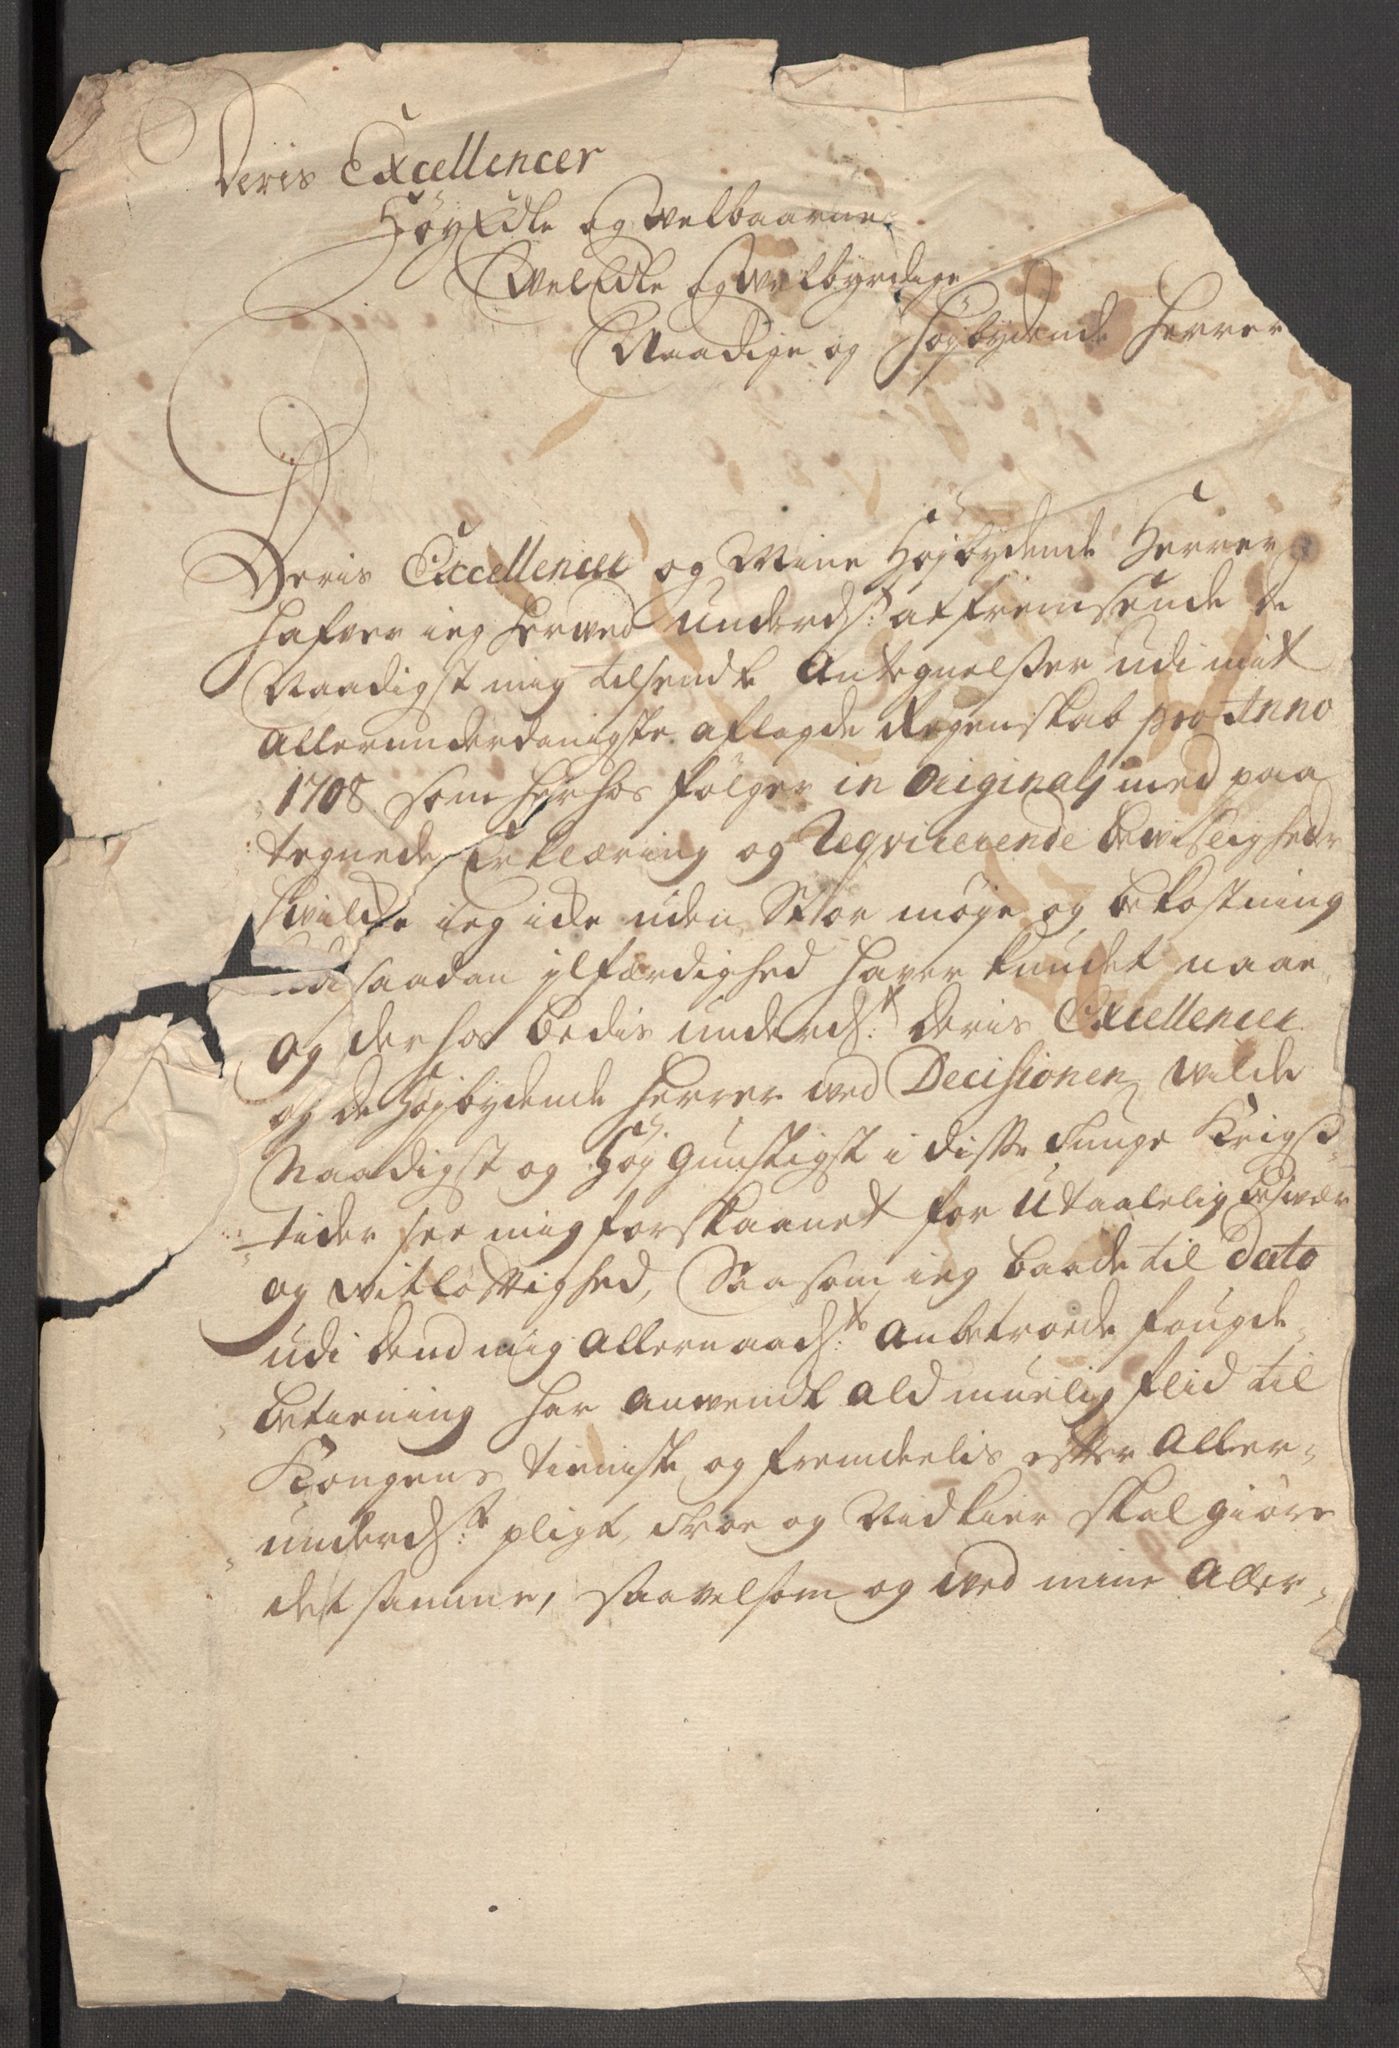 Deris Excellencer
HöyEdle og Welbaarne
WelEdle og Welbyrdige
Naadige og Höybydende Herrer
Deris Excellencer og Mine Höybydende Herrer
hafver ieg herved underd:st at fremsende de
Naadigst mig tilsendte Antegnelsser udi mit
Allerunderdanigste aflagde Regenskab pro Anno
1708 som herhos fölger in Originalj med paa
tegnede Erklæring og Reqvirerende bevisligheder
hvilcke ieg icke uden Stor möye og bekostning
udi saadan ilfærdighed haver kundet naae,
og derhos bedis underd:st Deris Excellencer
og de Höybydende Herrer ved Decisionen vilde
Naadigst og HöyGunstigst i disse tunge Krigs-
tider see mig forskaanet for Utaalelig besvær
og vitlöftighed, Saasom ieg baade til Dato
udi dend mig Allernaad:ste Anbetroede fougde-
betiening har anvendt ald muelig flid til
Kongens tieniste, og fremdeelis efter Aller-
underd:st pligt, troe og Nidkier skal giöre
det samme, saavelsom og ved mine Aller-